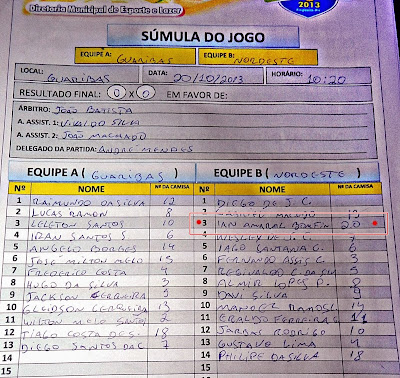 Diretoria Municipal de Esporte e Lazer
2013
SÚMULA DO JOGO
EQUIPE A: GUARIBAS EQUIPE B: NORDESTE
LOCAL: GUARIBAS DATA: 20/10/2013 HORÁRIO: 10:20
RESULTADO FINAL: 0 X 0 EM FAVOR DE:
ÁRBITRO: JOÃO BATISTA
A. ASSIST. 1: NIVALDO SILVA
A. ASSIST. 2: JOÃO MACHADO
DELEGADO DA PARTIDA: ANDRÉ MENDES
EQUIPE A ( GUARIBAS ) EQUIPE B ( NORDESTE )
Nº NOME Nº DA CAMISA Nº NOME Nº DA CAMISA
1 RAIMUNDO DA SILVA 12 1 DIEGO DE J. C.
2 LUCAS RAMON 8 2
3 LELETON SANTOS 10 3 IAN AMARAL BOMFIN 20
4 IRAN SANTOS 6 4 WESLEY DE J.
5 ANGELO BORGES 14 5 IAGO SANTANA G. 6
6 JOSÉ MILTON MELO 15 6 FERNANDO ASSIS C. 3
7 FREDERICO COSTA 4 7 REGINALDO C. DA 5
8 HUGO DA SILVA 3 8 ALMIR LOPES P. 8
9 JACKSON CERQUEIRA 9 DAVI SILVA 9
10 GLEIDSON CERQUEIRA 13 10 MANOEL RAMOS
11 WILTON MELO SANTOS 2 11 ERALDO FERREIRA 11
12 TIAGO COSTA DE S. 18 12 JARBAS RODRIGO 10
13 DIEGO SANTOS DA C. 7 13 GUSTAVO LIMA 4
14 14 PHILIPE DA SILVA 18